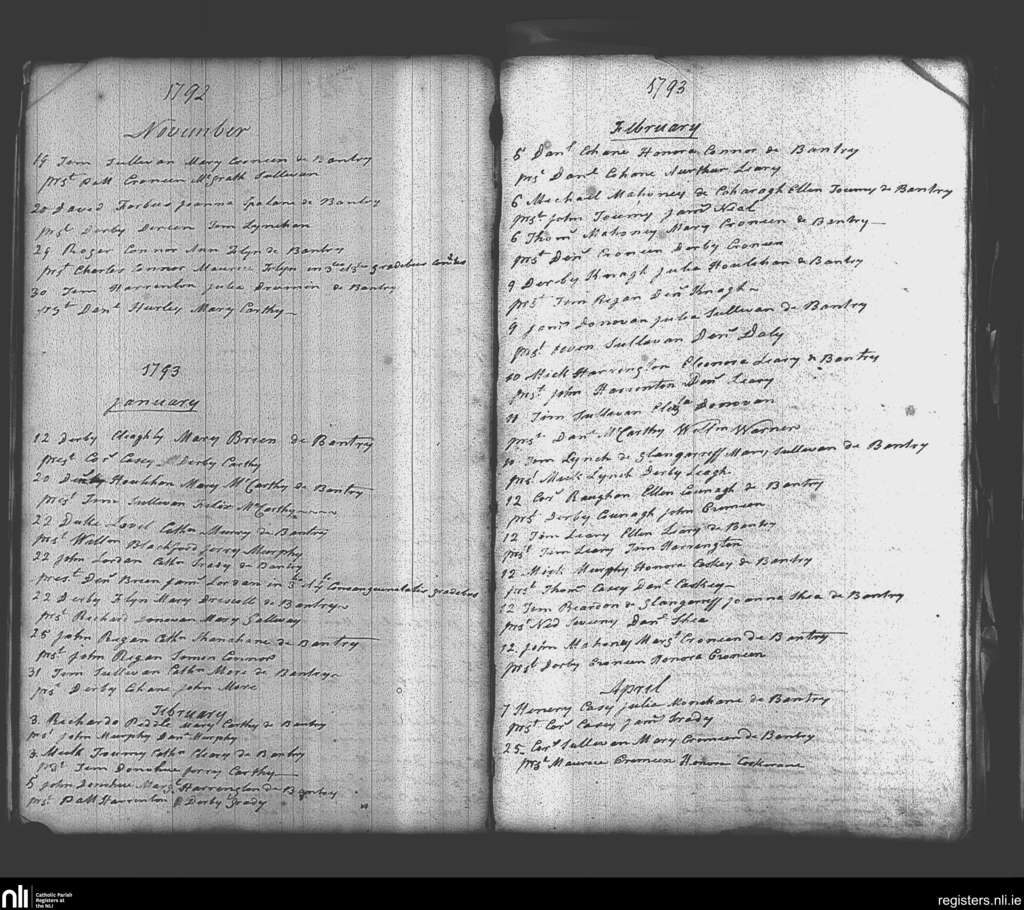 1792
November
19 Tom Sullivan Mary Croneen de Bantry
prst Patt Croneen McGrath Sullivan
20 David Forbus Joanna Spalane de Bantry
prst Derby Dereen Tom Lynehan
29 Roger Connor Ann Flyn de Bantry
prst Charles Connor Maurice Flyn in 3tio et 3tio gradibus
30 Tom Harrinton Julia Dromin de Bantry
prst Danl Hurley Mary Carthy
1793
January
12 Derby Mary Brien de Bantry
prest Cors Casey Derby Carthy
20 Houlihan Mary McCarthy de Bantry
prest Tom Sullivan Felix McCarthy
22 Duke Lovel Cathn Murry de Bantry
prst Walton Blachford Jerry Murphy
22 John Lordan Cathn Grady de Bantry
prest Dens Breen Jams Lordan in 3tio et 4to Consanguinitatis gradibus
22 Derby Flyn Mary Driscoll de Bantry
prst Richard Donovan Mary Galloway
25 John Regan Cathn Shanahane de Bantry
prst John Regan Connor
31 Tom Sullivan Cathn More de Bantry
prst Derby Cohane John More
February
3 Richardo Peddle Mary Carthy de Bantry
prst John Murphy Danl Murphy
3 Mick Tourny Cathn Cleary de Bantry
prst Tom Donohue Jerry Carthy
5 John Donohue Margt Harrington de Bantry
prst Patt Harrinton Derby Grady
1793
February
5 Danl Cohane Honora Connor de Bantry
prst Danl Cohane Aurthur Leary
6 Michall Mahoney de Coharagh Ellen Tourny de Bantry
prst John Tourny Jams Neal
6 Thoms Mahoney Mary Croneen de Bantry
prst Dens Croneen Derby Croneen
9 Dereby Knagh Julia Houlihan de Bantry
prst Tom Regan Dens Knagh
9 Jams Donovan Julia Sullivan de Bantry
prst Sullivan Dens Daly
10 Mick Harrington Eleonora Leary de Bantry
prst John Harrinton Dens Leary
11 Tim Sullivan Eliza Donovan
prst Danl McCarthy Willm Warner
10 Tom Lynch de Glangarriff Mary Sullivan de Bantry
prst Mick Lynch Derby Leagh
12 Cors Raughan Ellen Counagh de Bantry
prst Derby Counagh John Croneen
12 Tim Leary Ellen Leary de Bantry
prst Tim Leary Tom Harrington
12 Mick Murphy Honora Coskey de Bantry
prst Thoms Casey Danl Coskey
12 Tom Reardon de Glangarriff Joanna Shea de Bantry
prst Ned Sweeny Danl Shea
12 John Mahoney Margt Croneen de Bantry
prst Derby Croneen Honora Croneen
April
7 Henery Casy Julia Monehane de Bantry
prst Cors Casey Jams Grady
25 Cors Sullivan Mary Croneen de Bantry
prst Maurice Croneen Honora Corkerane
nli
Catholic Parish
Registers at
the NLI
registers.nli.ie